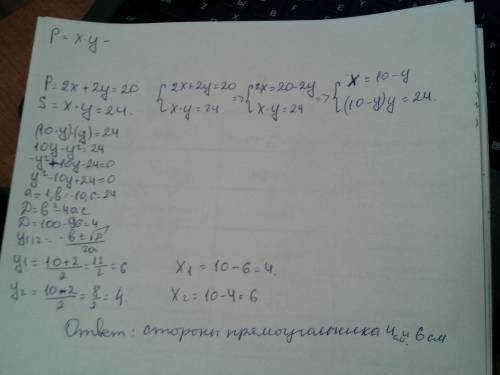 P = x·y –
P = 2x + 2y = 20
S = x·y = 24.
{2x+2y=20 x·y=24 => {2x=20-2y x·y=24 => {x=10-y (10-y)y=24.
(10-y)·(y)=24
10y-y²=24
-y²+10y-24=0
y²-10y+24=0
a=1, b=-10, c=24
D=b²-4ac
D=100-96=4
y1,2=(-b±√D)/2a
y1=(10+2)/2=12/2=6 X1=10-6=4.
y2=(10-2)/2=8/2=4. X2=10-4=6
Ответ: стороны прямоугальника 4 см и 6 см